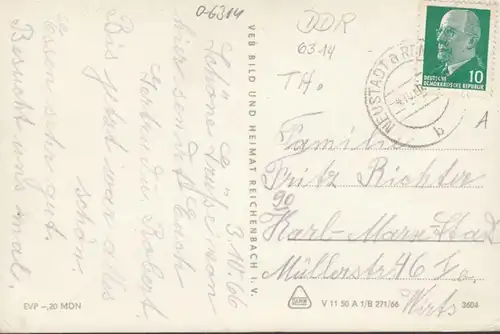 06314
DDR
6314
TH.
3.10.66
Schöne Grüße von
hier sendet Euch
Gerta und Robert
Bis jetzt war alles
schön
Essen sehr gut.
Besucht uns mal.
VEB BILD UND HEIMAT REICHENBACH I. V.
NEUSTADT a RENN
b
10
DEUTSCHE
DEMOKRATISCHE REPUBLIK
A
Familie
Fritz Richter
90
Karl-Marx-Stadt
Müllerstr 46
EVP -,20 MDN
V 11 50 A 1/B 271/66
3604